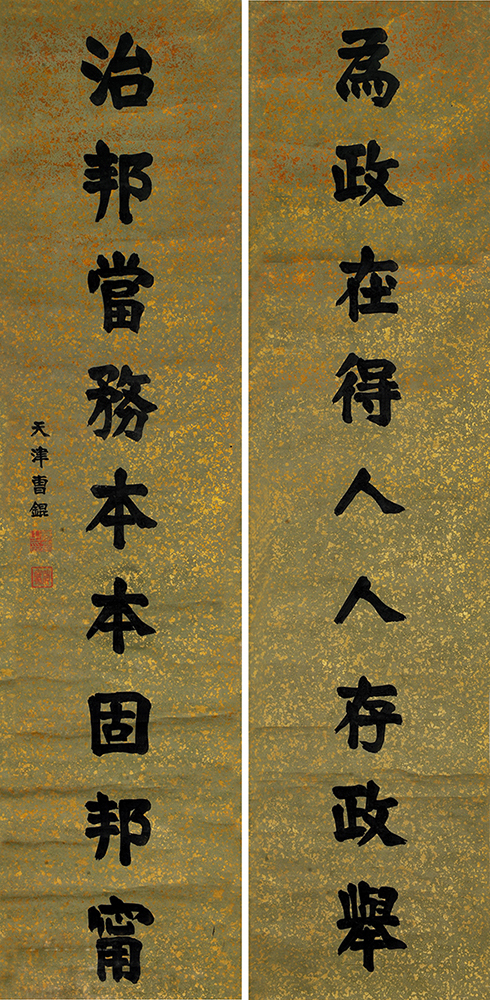 為政在得人人存政舉
治邦當務本本固邦甯
天津曹錕